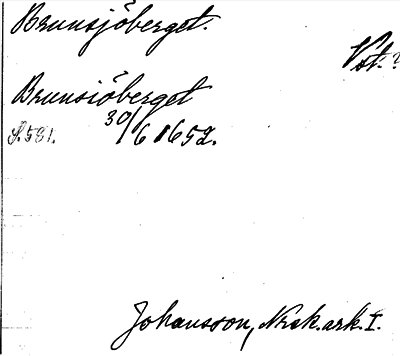 Brunsjöberget.
Vst.?
Brunsiöberget
S. 531. 30/6 1652.
Johansson, Nrsk. ark. I.